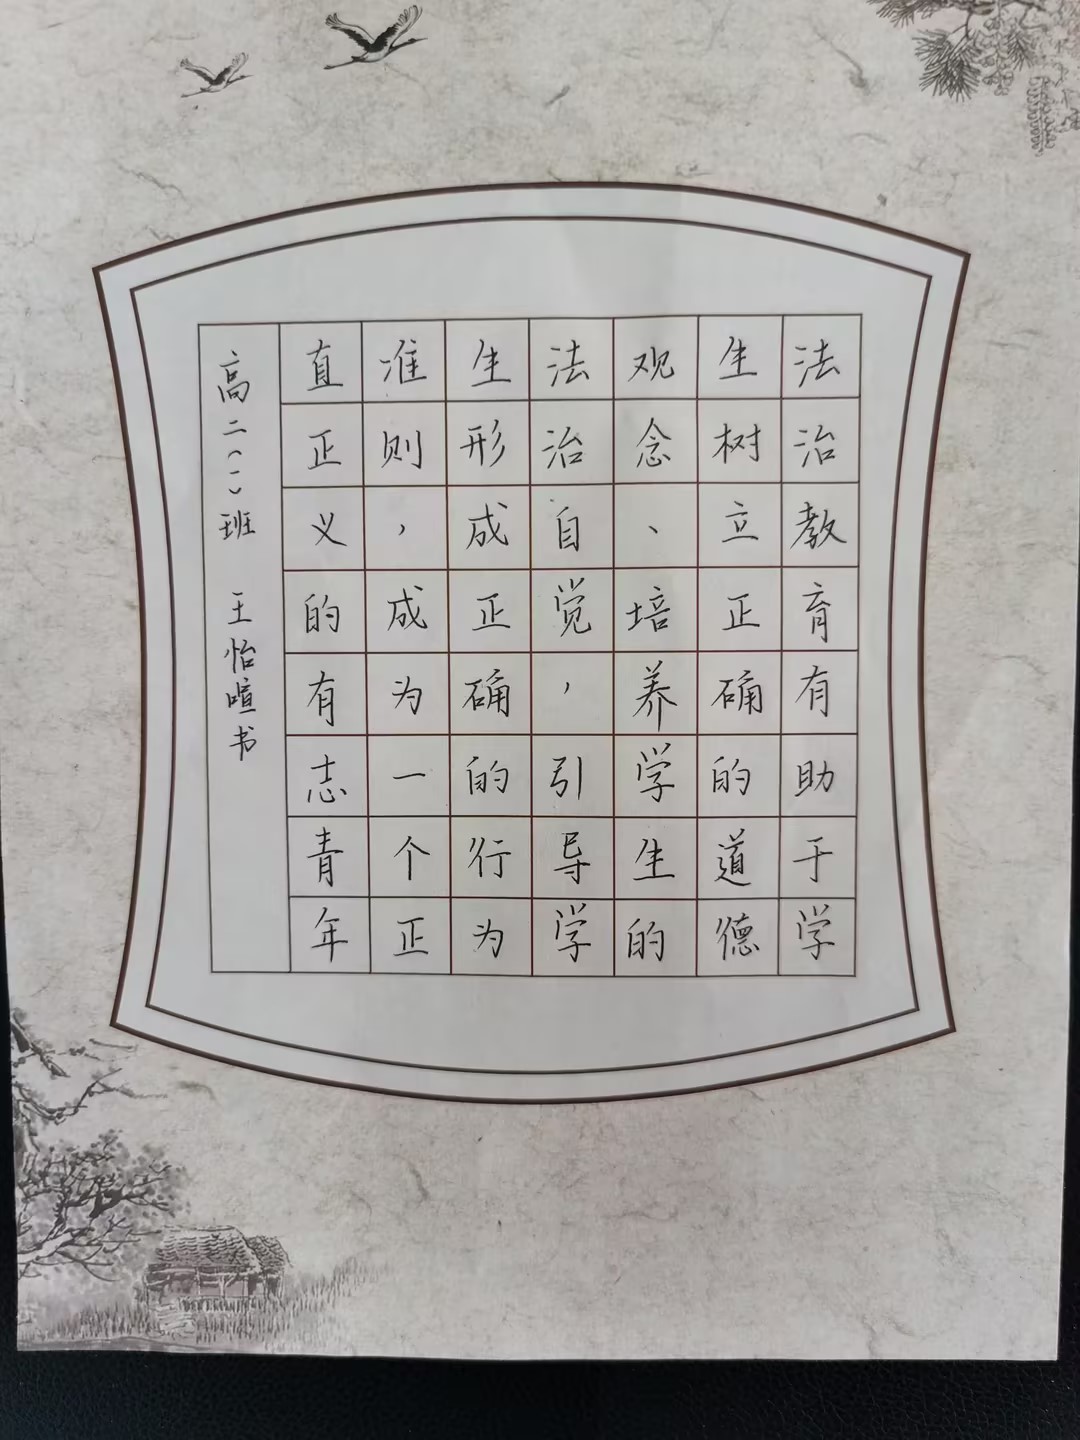 法治教育有助于学
生树立正确的道德
观念、培养学生的
法治自觉，引导学
生形成正确的行为
准则，成为一个正
直正义的有志青年
高二（一）班 王怡暄书